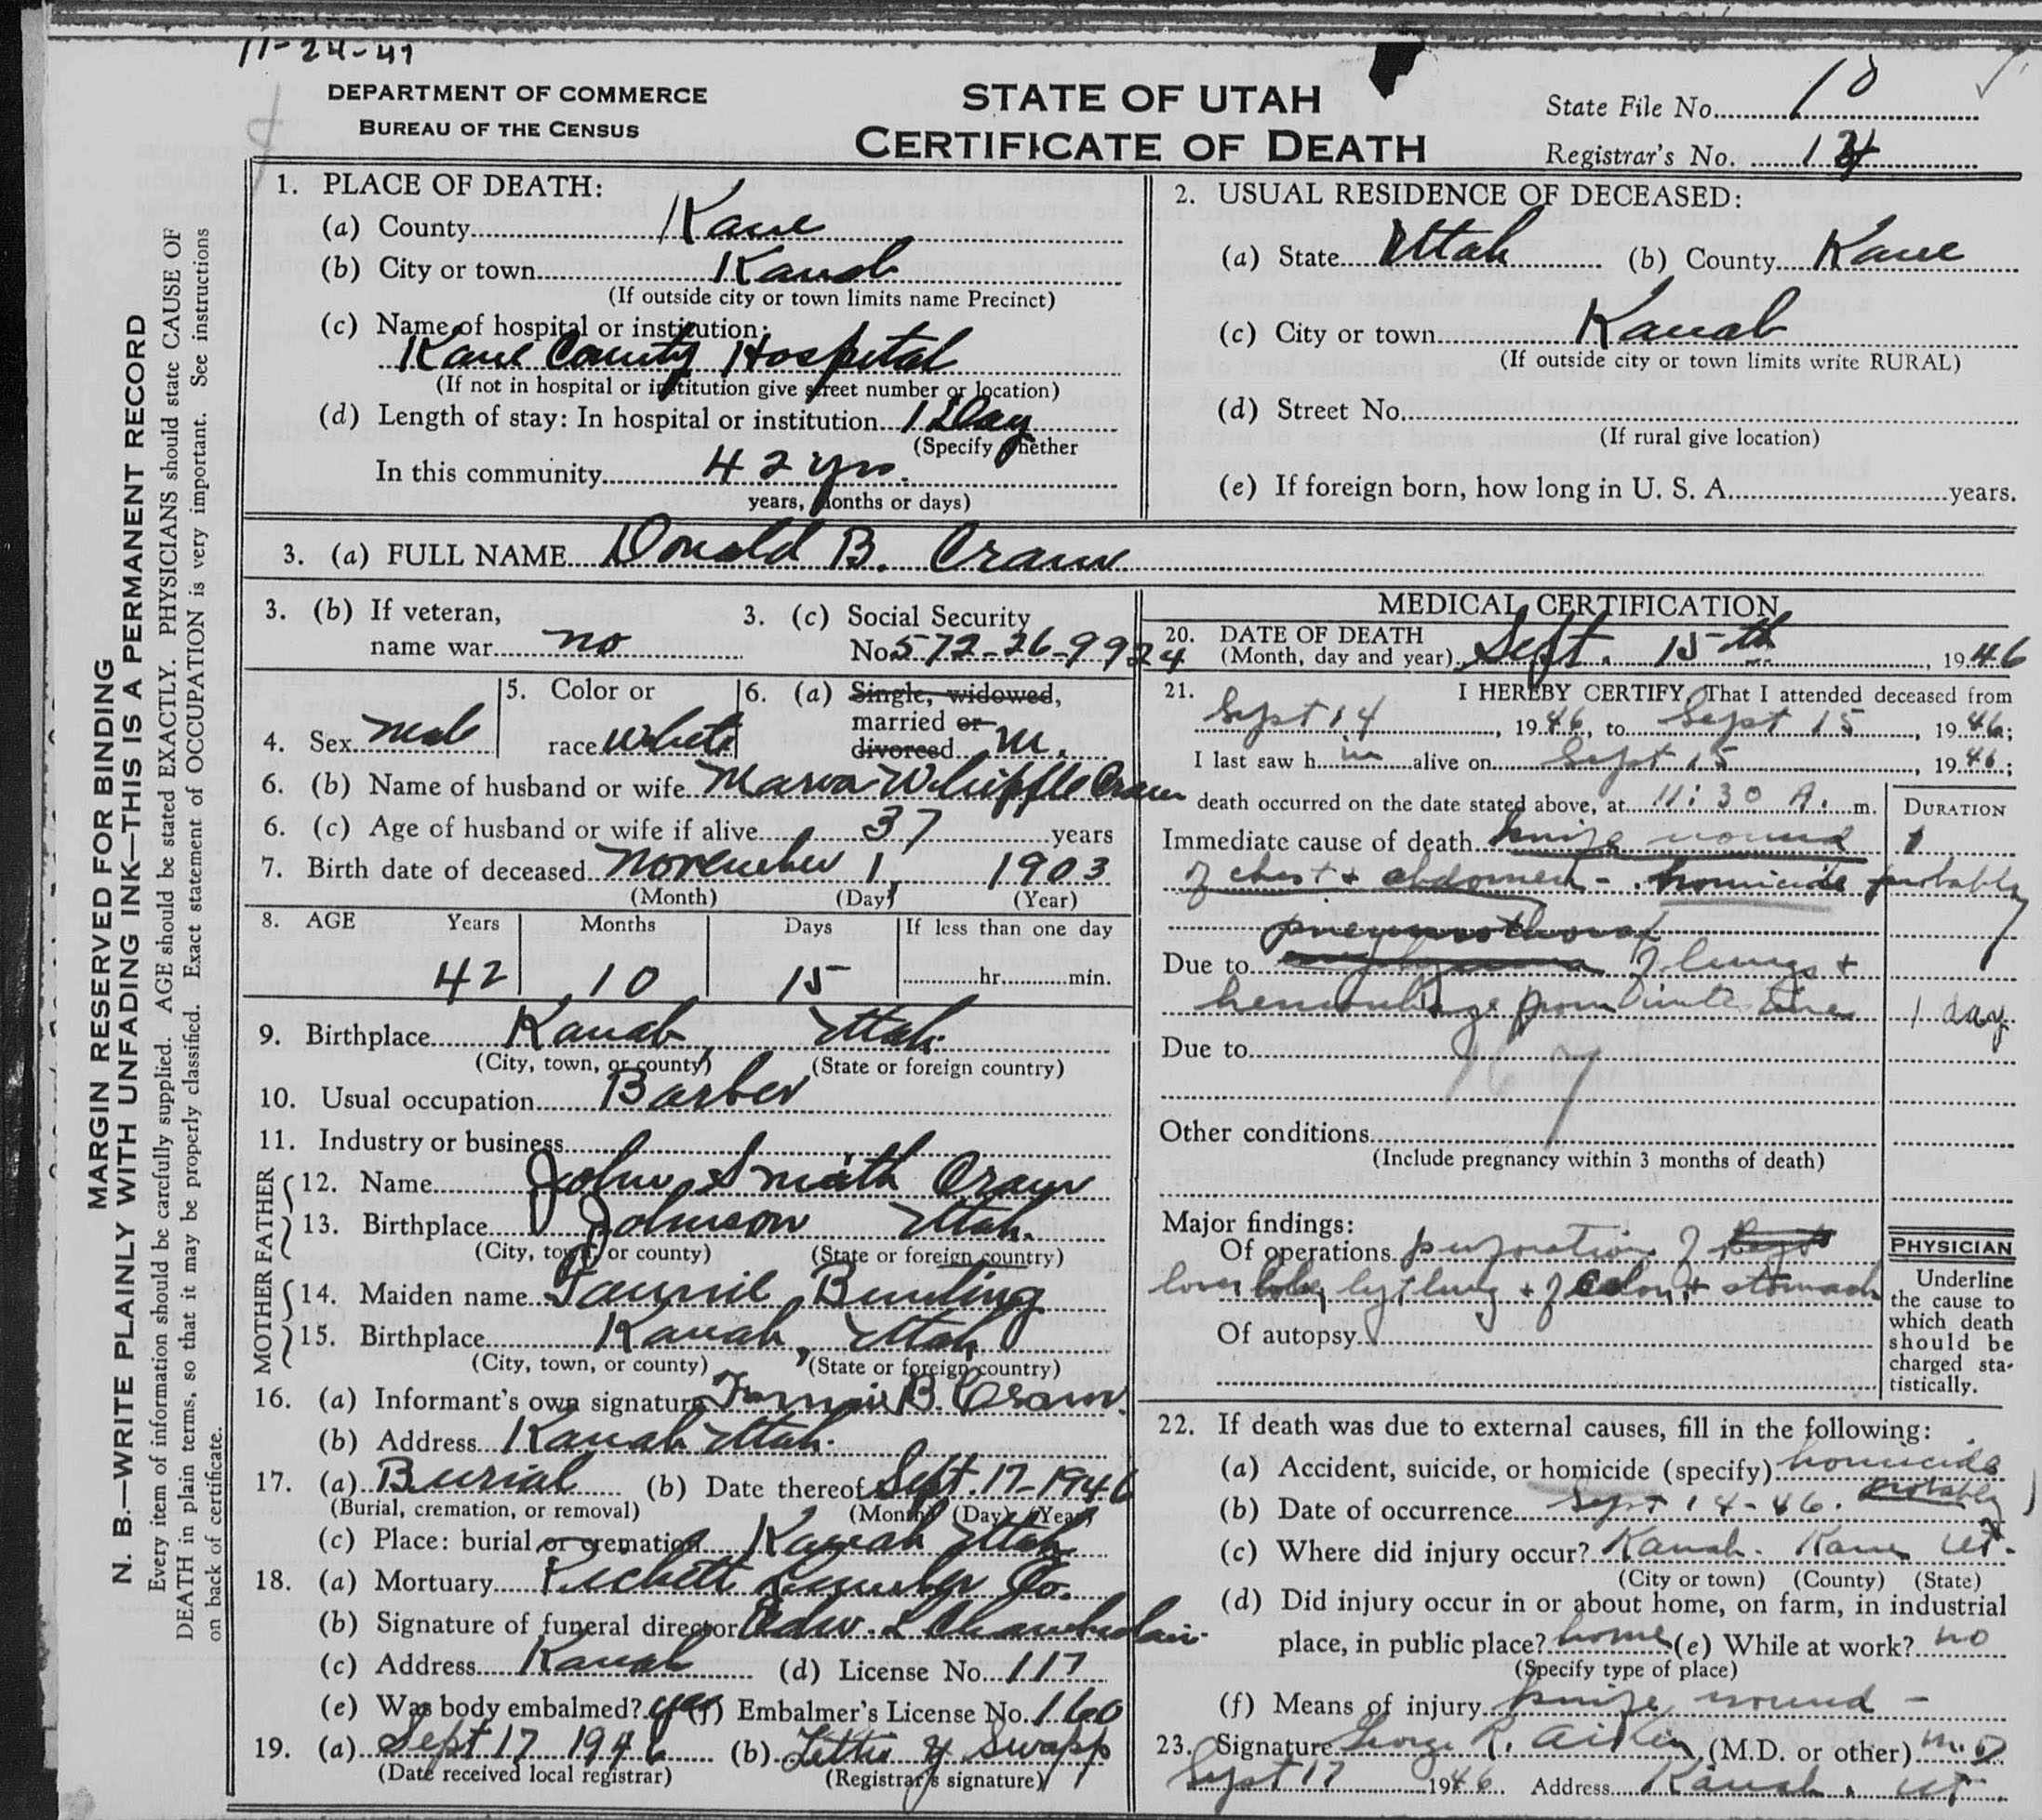 11-24-47
DEPARTMENT OF COMMERCE
BUREAU OF THE CENSUS
STATE OF UTAH
CERTIFICATE OF DEATH
State File No. 10
Registrar's No. 1
MARGIN RESERVED FOR BINDING
N. B.—WRITE PLAINLY WITH UNFADING INK—THIS IS A PERMANENT RECORD
Every item of information should be carefully supplied. AGE should be stated EXACTLY. PHYSICIANS should state CAUSE OF
DEATH in plain terms, so that it may be properly classified. Exact statement of OCCUPATION is very important. See instructions
on back of certificate.
1. PLACE OF DEATH:
(a) County Kane
(b) City or town Kanab
(If outside city or town limits name Precinct)
(c) Name of hospital or institution:
Kane County Hospital
(If not in hospital or institution give street number or location)
(d) Length of stay: In hospital or institution 1 Day
(Specify whether
In this community 42 yrs.
years, months or days)
2. USUAL RESIDENCE OF DECEASED:
(a) State Utah (b) County Kane
(c) City or town Kanab
(If outside city or town limits write RURAL)
(d) Street No.
(If rural give location)
(e) If foreign born, how long in U. S. A. years.
3. (a) FULL NAME Donald B. Cram
3. (b) If veteran,
name war no
3. (c) Social Security
No. 572-26-9924
4. Sex Mal
5. Color or
race White
6. (a) Single, widowed,
married or
divorced M.
6. (b) Name of husband or wife Marva Whipple Cram
6. (c) Age of husband or wife if alive 37 years
7. Birth date of deceased November 1, 1903
(Month) (Day) (Year)
8. AGE Years Months Days If less than one day
42 10 15 hr. min.
9. Birthplace Kanab Utah
(City, town, or county) (State or foreign country)
10. Usual occupation Barber
11. Industry or business
FATHER
12. Name John Smith Cram
13. Birthplace Johnson Utah.
(City, town, or county) (State or foreign country)
MOTHER
14. Maiden name Bunting
15. Birthplace Kanab, Utah
(City, town, or county) (State or foreign country)
16. (a) Informant's own signature B. Cram.
(b) Address Kanab Utah.
17. (a) Burial (b) Date thereof Sept. 17-1946
(Burial, cremation, or removal) (Month) (Day) (Year)
(c) Place: burial or cremation Kanab Utah
18. (a) Mortuary Co.
(b) Signature of funeral director Edw. L Chamberlain
(c) Address Kanab (d) License No. 117
(e) Was body embalmed? yes (f) Embalmer's License No. 160
19. (a) Sept 17 1946 (b) Swapp
(Date received local registrar) (Registrar's signature)
MEDICAL CERTIFICATION
20. DATE OF DEATH
(Month, day and year) Sept. 15th, 1946
21. I HEREBY CERTIFY, That I attended deceased from
Sept 14, 1946, to Sept 15, 1946;
I last saw him alive on Sept 15, 1946;
death occurred on the date stated above, at 11:30 A. m.
DURATION
Immediate cause of death knife wound
of chest & abdomen - homicide probably
pneumothorax
Due to of lungs &
hemorrhage from 1 day
Due to
Other conditions
(Include pregnancy within 3 months of death)
Major findings:
Of operations perforation of
lower lobe left lung & of colon & stomach
Of autopsy
PHYSICIAN
Underline
the cause to
which death
should be
charged sta-
tistically.
22. If death was due to external causes, fill in the following:
(a) Accident, suicide, or homicide (specify) homicide
probably
(b) Date of occurrence Sept 14-46.
(c) Where did injury occur? Kanab. Kane Ut.
(City or town) (County) (State)
(d) Did injury occur in or about home, on farm, in industrial
place, in public place? home (e) While at work? no
(Specify type of place)
(f) Means of injury knife wound -
23. Signature George R. Aiken (M.D. or other) M.D
Sept 17 1946 Address Kanab, Ut.